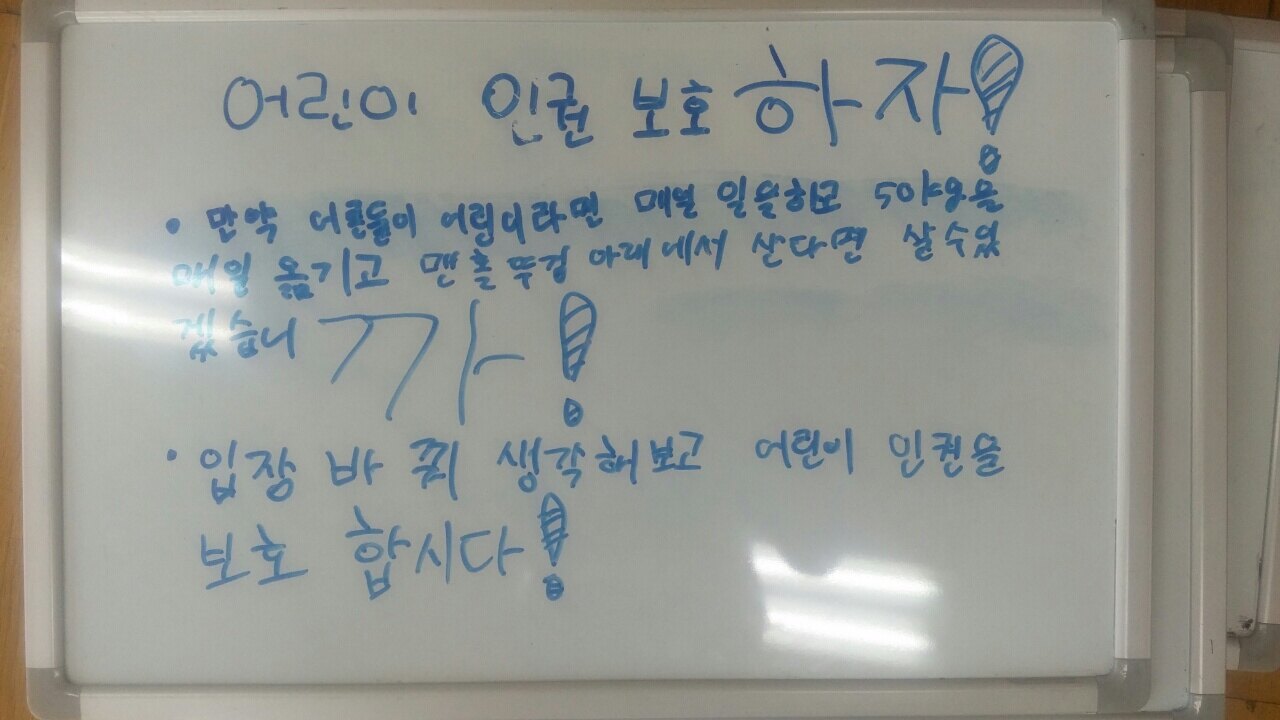 어린이 인권 보호 하자!
• 만약 어른들이 어린이라면 매일 일을하고
매일 옮기고 맨홀 뚜껑 아래에서 산다면 살수있
겠습니까!
• 입장 바꿔 생각해보고 어린이 인권을
보호 합시다!